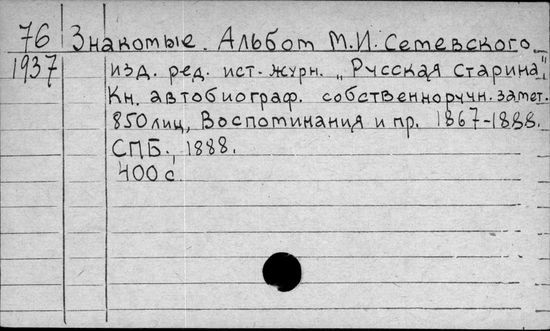 76 Знакомые. Альбом М.И. Семевского
1937 изд. ред. ист. журн. „Русская Старина",
Кн. автобиограф. собственноручн. замет.
850 лиц, Воспоминания и пр. 1867-1888.
СПБ., 1888.
400 с